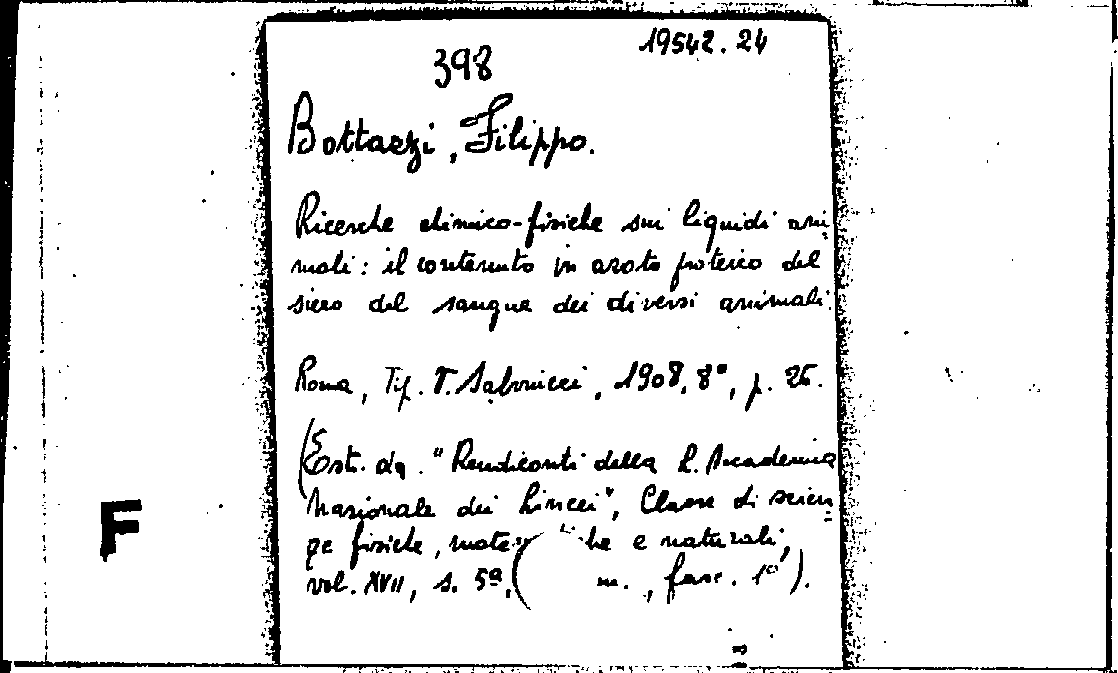 19542.24
398
Bottazzi, Filippo.
Ricerche chimico-fisiche sui liquidi ani-
mali: il contenuto in azoto proteico del
siero del sangue dei diversi animali.
Roma, Tip. V. Salviucci, 1908, 8°, p. 26.
(Est. da "Rendiconti della R. Accademia
Nazionale dei Lincei", Classe di scien-
ze fisiche, mate che e naturali,
vol. XVII, s. 5ª, ( m., fasc. 1°).
F